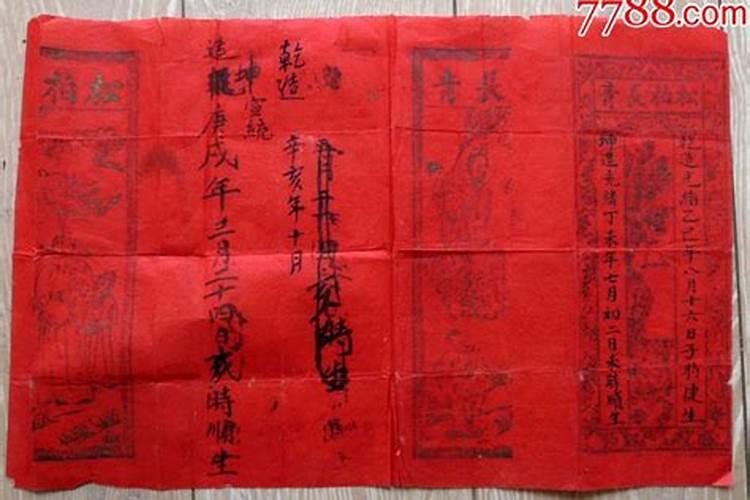 7788.com
松柏長青
乾造光緒乙巳年八月十六日子時健生
坤造光緒丁未年七月初二日未時順生
長青
時生
乾造
宣統辛亥年十月
坤
造庚戌年三月二十四日亥時順生
松柏